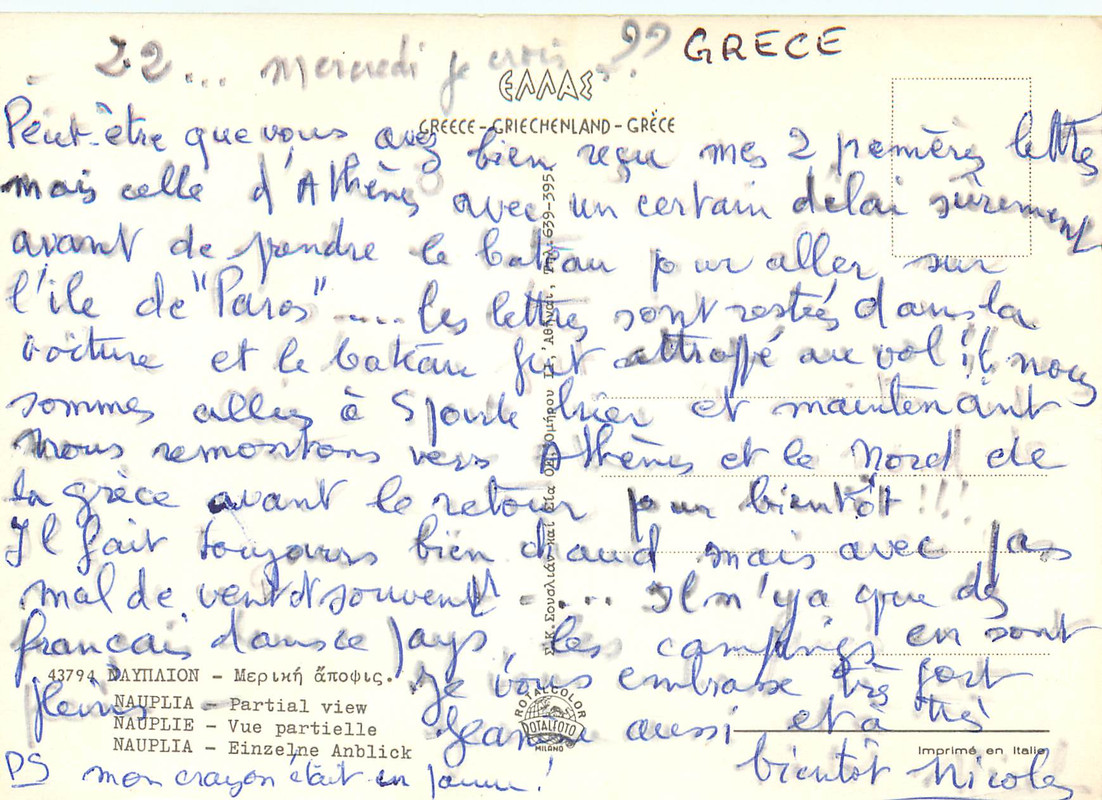 22... mercredi je crois..?? GRECE
ΕΛΛΑΣ
GREECE-GRIECHENLAND-GRÈCE
Peut-être que vous avez bien reçu mes 2 premières lettres
mais celle d'Athènes avec un certain délai sûrement
avant de prendre le bateau pour aller sur
l'île de "Paros".... les lettres sont restées dans la
voiture et le bateau fut attrappé au vol !! nous
sommes allés à Sparte hier et maintenant
nous remontons vers Athènes et le Nord de
la grèce avant le retour pour bientôt !!!
Il fait toujours bien chaud mais avec pas
mal de vent souvent! .... Il n'y a que des
francais dans ce pays, les campings en sont
pleins
Je vous embrasse très fort
Jeanne aussi et à très
bientôt Nicolas
PS mon crayon était en panne!
43794 ΝΑΥΠΛΙΟΝ - Μερική ἄποψις.
NAUPLIA - Partial view
NAUPLIE - Vue partielle
NAUPLIA - Einzelne Anblick
ROTALCOLOR
ROTALFOTO
MILANO
Imprimé en Italie
Ἀθῆναι, Τηλ. 639-395